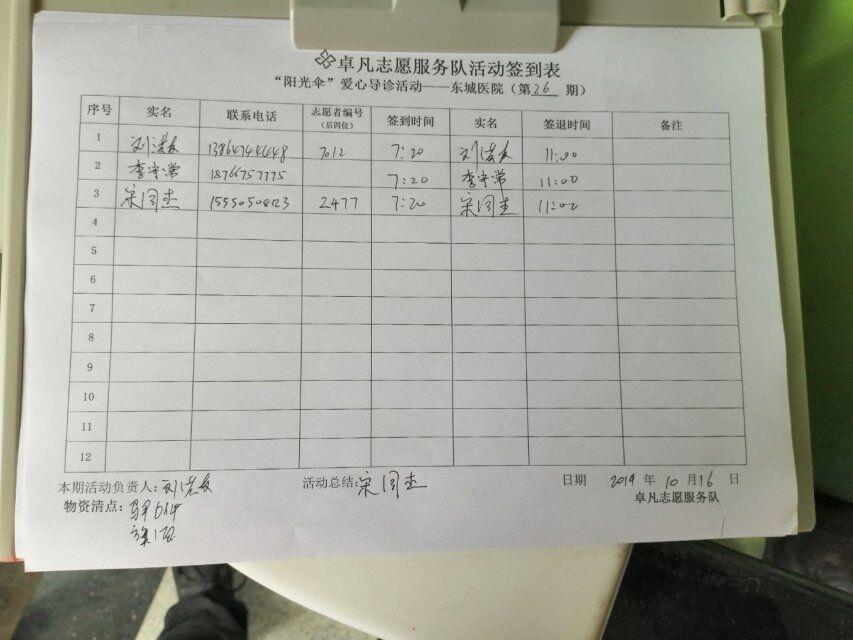 卓凡志愿服务队活动签到表
“阳光伞”爱心导诊活动——东城医院（第26期）
序号 实名 联系电话 志愿者编号（后四位） 签到时间 实名 签退时间 备注
1 刘洪友 13864744648 7012 7:20 刘洪友 11:00
2 李守常 18766757775 7:20 李守常 11:00
3 宋同杰 15550508123 2477 7:20 宋同杰 11:00
4
5
6
7
8
9
10
11
12
本期活动负责人:刘洪友 活动总结:宋同杰 日期 2019年10月16日
物资清点: 卓凡志愿服务队